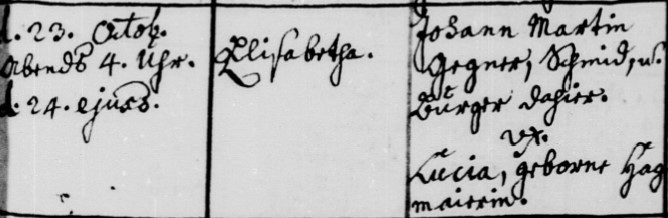 d. 23. Octob.
Abends 4. Uhr.
d. 24. ejusd.
Elisabetha.
Johann Martin
Gegner, Schmid, u.
Burger dahier.
ux.
Lucia, geborne Hag
maierin.